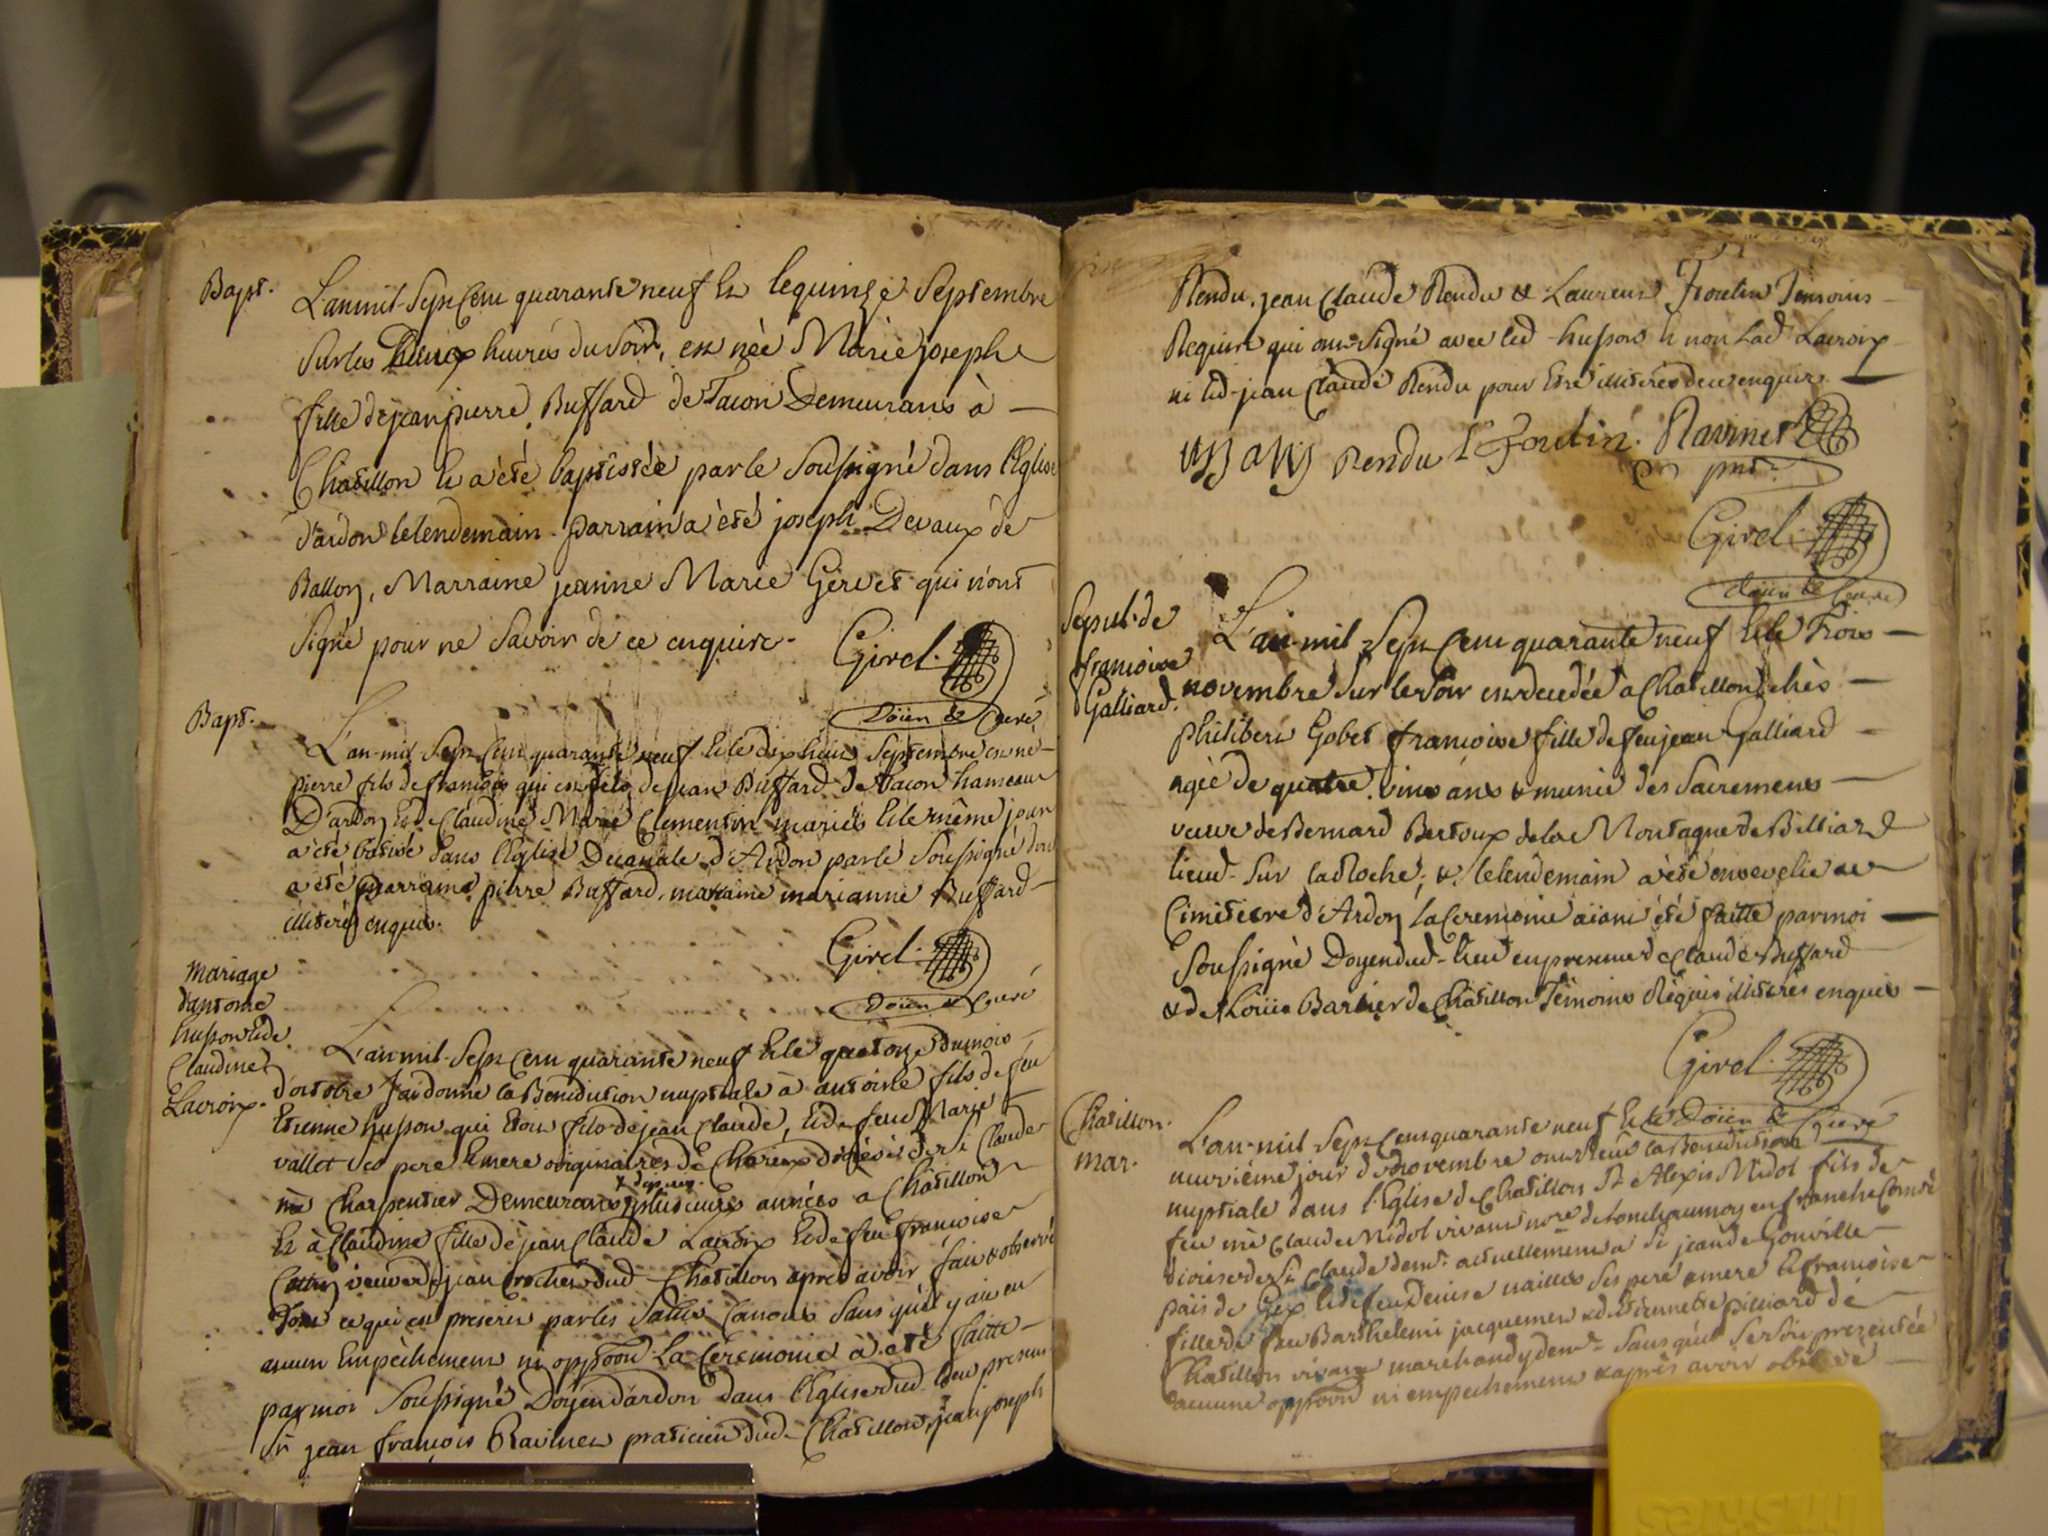 Bapt.
L'an mil Sept Cent quarante neuf Et le quinze Septembre
Sur les heures du Soir, est née Marie joseph
fille de jean pierre Buffard de Tacon Demeurans à
Chatillon Et a été baptistée par le Soussigné dans l'Eglise
d'ardon le lendemain. parrain a été joseph Devaux de
Ballon, Marraine jeanne Marie Gervet qui n'ont
Signé pour ne Savoir de ce enquire.
Girel.
Doïen & Curé
Bapt.
L'an mil Sept Cent quarante neuf Et le dix huit Septembre est né
pierre fils de françois qui est fils de jean Buffard de Tacon hameau
D'ardon Et de Claudine Marie Clementin mariés Et le même jour
a été batisé dans l'Eglise Decanale d'Ardon par le Soussigné dont
a été parrain pierre Buffard, maraine marianne Buffard
illiterés enquis.
Girel.
Doïen & Curé
Mariage
d'antoine
husson Et de
Claudine
Lacroix.
L'an mil Sept Cent quarante neuf Et le quatorze du mois
d'octobre J'ai donné la Benediction nuptiale à antoine fils de feu
Etienne husson qui Etoit fils de jean Claude, Et de feue Marie
vallet Ses pere Et mere originaires de diocése de St Claude
me Charpentier Demeurant depuis plusieurs années a Chatillon
Et à Claudine fille de jean Claude Lacroix Et de feue françoise
veuve de jean rochet dud. Chatillon après avoir fait & observé
Tout ce qui est prescrit par les Saints Canons Sans qu'il y ait eu
aucun Empêchement ni oppōon La Ceremonie a été faitte
par moi Soussigné Doÿen d'ardon dans l'Eglise dud. lieu present
Sr jean françois Ravinet praticien dud. Chatillon, jean joseph
Rendu, jean Claude Rendu & Laurent Foulin Témoins
Requis qui ont Signé avec led. husson & non lad. Lacroix
ni led. jean Claude Rendu pour Etre illiterés de ce enquis.
Rendu L Foulin. Ravinet
pnt.
Girel.
doïen & Curé
Sepul. de
françoise
Galliard.
L'an mil Sept Cent quarante neuf Et le Trois
novembre Sur le Soir est decedée a Chatillon chès
philibert Gobet françoise fille de feu jean Galliard
agée de quatre vint ans & munie des Sacremens
veuve de Bernard Bertoux de la Montagne de Billiard
lieud. Sur la Roche, & le lendemain a été ensevelie au
Cimitiere d'Ardon la Ceremonie aïant été faitte par moi
Soussigné Doyen dud. lieu en presence de Claude Buffard
& de Loüis Barbier de Chatillon Témoins Réquis illiterés enquis
Girel.
Doïen & Curé
Chatillon.
mar.
L'an mil Sept Cent quarante neuf Et le
neuvième jour de Novembre ont reçu la Benediction
nuptiale dans l'Eglise de Chatillon Sr Alexis Nidol fils de
feu me Claude Nidol vivant nore de Lonchaumoy en franche Comté
diocise de St Claude demt. actuellement a St jean de Gonville
païs de Gex Et de feu Denise naillod Ses pere & mere Et françoise
fille de feu Barthelemi jacquemet & d'Etiennette pilliard de
Chatillon vivant marchand y demt. Sans qu'il Se Soit prezentée
aucune oppōon ni empechement & après avoir observé